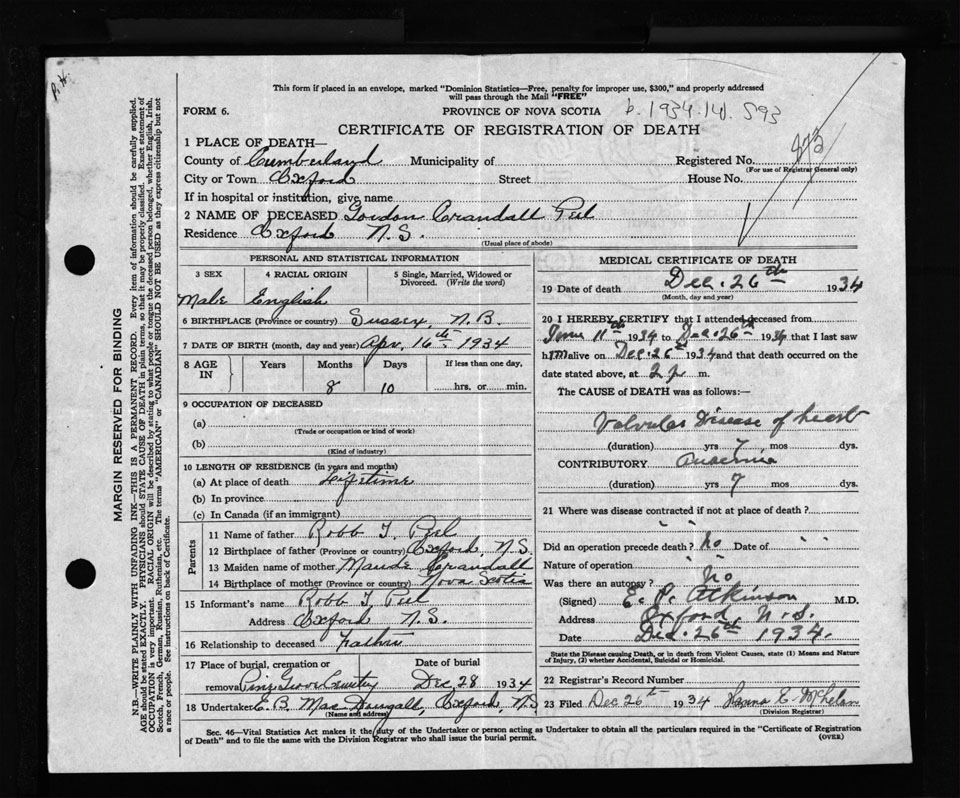 P. H.
This form if placed in an envelope, marked "Dominion Statistics—Free, penalty for improper use, $300," and properly addressed
will pass through the Mail "FREE"
FORM 6.
PROVINCE OF NOVA SCOTIA
b. 1934. 593
CERTIFICATE OF REGISTRATION OF DEATH
1 PLACE OF DEATH—
County of Cumberland Municipality of Registered No.
(For use of Registrar General only)
City or Town Oxford Street House No.
If in hospital or institution, give name
2 NAME OF DECEASED Gordon Crandall Peel
Residence Oxford N.S.
(Usual place of abode)
PERSONAL AND STATISTICAL INFORMATION
3 SEX 4 RACIAL ORIGIN 5 Single, Married, Widowed or
Divorced. (Write the word)
Male English
6 BIRTHPLACE (Province or country) Sussex, N.B.
7 DATE OF BIRTH (month, day and year) Apr. 16th 1934
8 AGE IN Years Months Days If less than one day,
8 10 hrs. or min.
9 OCCUPATION OF DECEASED
(a)
(Trade or occupation or kind of work)
(b)
(Kind of industry)
10 LENGTH OF RESIDENCE (in years and months)
(a) At place of death Lifetime
(b) In province
(c) In Canada (if an immigrant)
Parents
11 Name of father Robb T. Peel
12 Birthplace of father (Province or country) Oxford, N.S.
13 Maiden name of mother Maude Crandall
14 Birthplace of mother (Province or country) Nova Scotia
15 Informant's name Robb T. Peel
Address Oxford N.S.
16 Relationship to deceased Father
17 Place of burial, cremation or Date of burial
removal Pine Grove Cemetery Dec 28 1934
18 Undertaker E. B. Mac Dougall, Oxford, N.S
(Name and address)
MEDICAL CERTIFICATE OF DEATH
19 Date of death Dec. 26th 1934
(Month, day and year)
20 I HEREBY CERTIFY that I attended deceased from
June 11th 1934 to Dec. 26th 1934 that I last saw
him alive on Dec. 26th 1934 and that death occurred on the
date stated above, at 2 p m.
The CAUSE OF DEATH was as follows:—
Valvular Disease of heart
(duration) yrs 7 mos dys.
CONTRIBUTORY Anaemia
(duration) yrs 7 mos dys.
21 Where was disease contracted if not at place of death?
" "
Did an operation precede death? No Date of " "
Nature of operation " "
Was there an autopsy? No
(Signed) E. P. Atkinson M.D.
Address Oxford N.S.
Date Dec. 26th 1934.
State the Disease causing Death, or in death from Violent Causes, state (1) Means and Nature
of Injury, (2) whether Accidental, Suicidal or Homicidal.
22 Registrar's Record Number
23 Filed Dec 26th 1934
(Division Registrar)
Sec. 46—Vital Statistics Act makes it the duty of the Undertaker or person acting as Undertaker to obtain all the particulars required in the "Certificate of Registration
of Death" and to file the same with the Division Registrar who shall issue the burial permit.
(OVER)
MARGIN RESERVED FOR BINDING
N.B.—WRITE PLAINLY WITH UNFADING INK—THIS IS A PERMANENT RECORD. Every item of information should be carefully supplied.
AGE should be stated EXACTLY. PHYSICIANS should STATE CAUSE OF DEATH in plain terms, so that it may be properly classified. Exact statement of
OCCUPATION is very important. RACIAL ORIGIN will be described by stating to what people or tongue the deceased person belonged, whether English, Irish,
Scotch, French, German, Russian, Ruthenian, etc. The terms "AMERICAN" or "CANADIAN" SHOULD NOT BE USED as they express citizenship but not
a race or people. See instructions on back of Certificate.